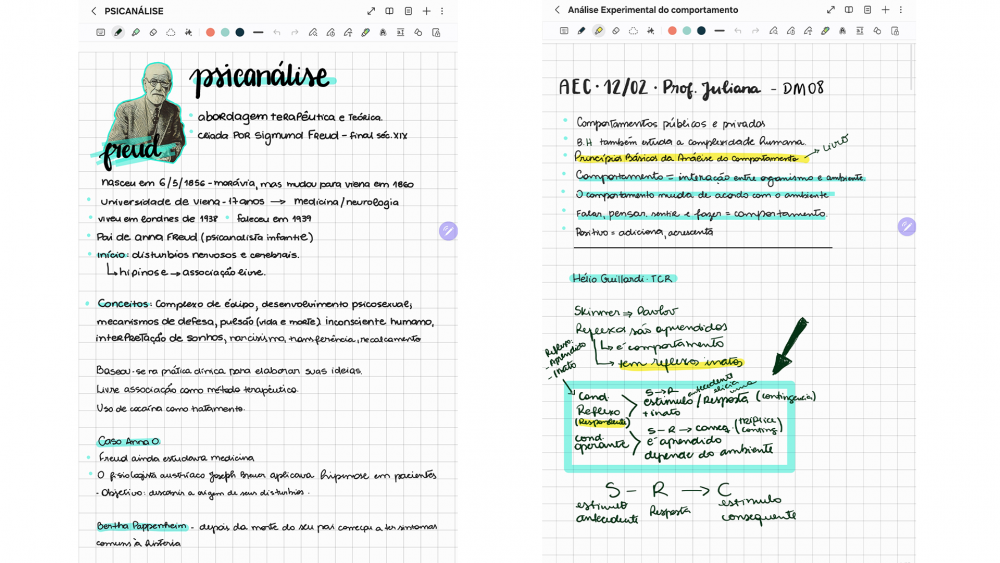 PSICANÁLISE
psicanálise
freud
abordagem terapêutica e Teórica.
criada POR Sigmund Freud - final séc. XIX
nasceu em 6/5/1856 - morávia, mas mudou para viena em 1860
universidade de viena - 17 anos → medicina/neurologia
viveu em Londres de 1938 • faleceu em 1939
Pai de anna Freud (psicanalista infantil)
Início: disturbios nervosos e cerebrais.
↳ hipinose → associação livre.
Conceitos: Complexo de édipo, desenvolvimento psicosexual,
mecanismos de defesa, pulsão (vida e morte). inconsciente humano,
interpretação de sonhos, narcisismo, transferência, recalcamento
Baseou-se na prática clínica para elaborar suas ideias.
Livre associação como método terapêutico.
Uso de cocaína como tratamento.
Caso Anna O.
Freud ainda estudava medicina
O fisiologista austríaco Joseph Breuer aplicava hipinose em pacientes
- Objetivo: descobrir a origem de seus distúrbios.
Bertha Pappenheim - depois da morte do seu pai começou a ter sintomas
comuns à histeria
Análise Experimental do comportamento
AEC • 12/02 • Prof. Juliana - DM08
Comportamentos públicos e privados
B.H também estuda a complexidade humana.
Princípios Básicos da Análise do comportamento → Livro
Comportamento = interação entre organismo e ambiente.
O comportamento muda de acordo com o ambiente
Falar, pensar, sentir e fazer = comportamento.
Positivo = adiciona, acrescenta
Hélio Guillardi - TCR
Skinner ⇒ Pavlov
Reflexos são aprendidos
↳ é comportamento
↳ tem reflexos inatos
Reflexo
- Aprendido
- Inato
Cond. Reflexo (Respondente)
S → R
antecedente elicia uma
estímulo / Resposta (contingência)
+ inato
cond. operante
S - R → conseq. (tríplice conting)
é aprendido
depende do ambiente
S - R → C
estímulo antecedente
Resposta
estímulo consequente